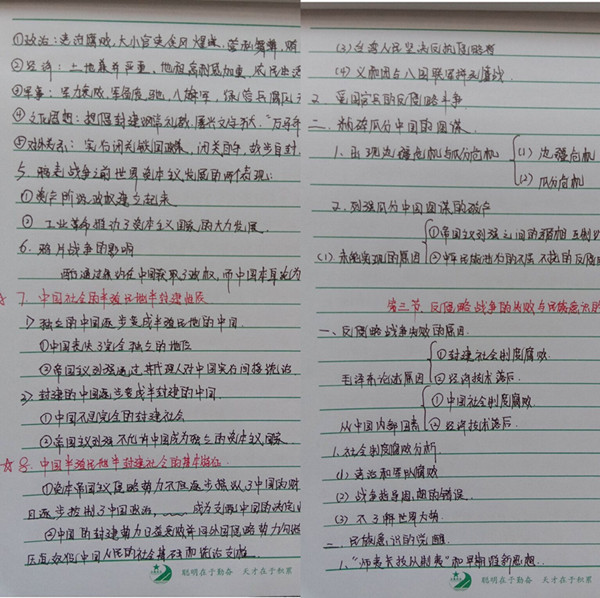 ①政治：吏治腐败，大小官吏贪风炽盛，营私舞弊，贿
②经济：土地兼并严重，地租高利息加重，农民生活
③军事：军力衰败，军备废弛，八旗军，绿营兵腐化
④文化思想：提倡封建纲常礼教，屡兴文字狱，“万马齐
⑤对外关系：实行闭关锁国政策，闭关自守，故步自封，
5、鸦片战争之前世界资本主义发展的两个表现：
①资产阶级政权建立起来
② 工业革命推动了资本主义国家的大力发展。
6、鸦片战争的影响
西方通过条约在中国获取了政权，而中国本身沦为
☆ 7、中国社会的半殖民地半封建性质
1) 独立的中国逐步变成半殖民地的中国
①中国丧失了完全独立的地位
②帝国主义列强通过其代理人对中国实行间接统治
2) 封建的中国逐步变成半封建的中国
①中国不是完全的封建社会
②帝国主义列强不允许中国成为独立的资本主义国家
☆ 8、中国半殖民地半封建社会的基本特征
①资本帝国主义侵略势力不但逐步操纵了中国的财
且逐步控制了中国政治，……成为支配中国的决定
②中国的封建势力日益衰败并同外国侵略势力勾结
压迫、奴役中国人民的社会基础和统治支柱
聪明在于勤奋 天才在于积累
(3) 台湾人民坚决反抗侵略者
(4) 义和团与八国联军殊死鏖战
2、爱国官兵的反侵略斗争
二、粉碎瓜分中国的图谋
1、出现边疆危机与瓜分危机 (1) 边疆危机
(2) 瓜分危机
2、列强瓜分中国图谋的破产
(1) 未能实现的原因
①帝国主义列强之间的矛盾和互相制约
②中华民族进行的不屈不挠的反侵
第三节 反侵略战争的失败与民族意识的
一、反侵略战争失败的原因
毛泽东论述原因
①封建社会制度腐败
②经济技术落后
从中国内部因素
①中国社会制度腐败
②经济技术落后
1、社会制度腐败分析
(1) 政治和军队腐败
(2) 战争指导思想的错误
(3) 不了解世界大势
二、民族意识的觉醒
1、“师夷长技以制夷”和早期维新思想
聪明在于勤奋 天才在于积累